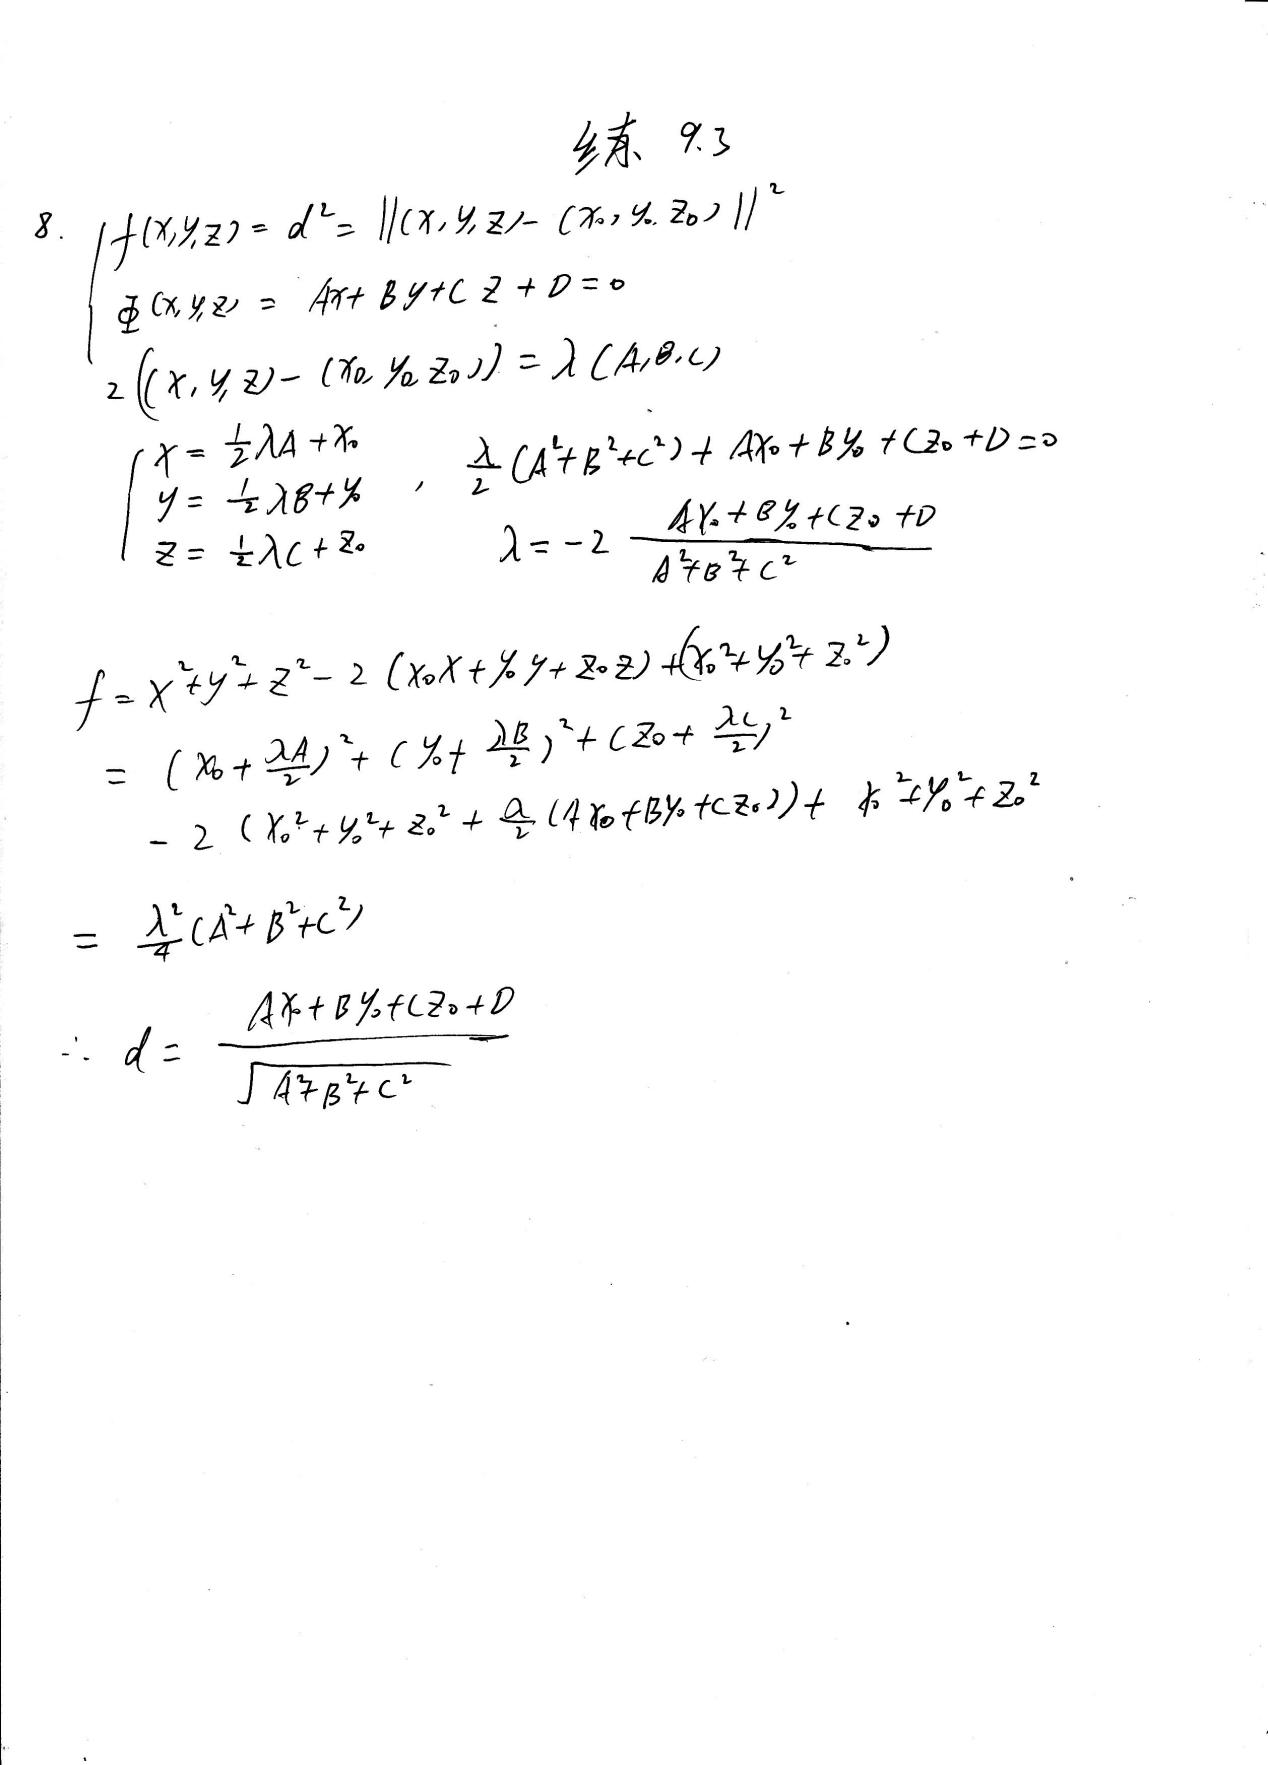 练 9.3
8. { f(x,y,z) = d² = ||(x,y,z) - (x₀,y₀,z₀)||²
Φ(x,y,z) = Ax + By + Cz + D = 0
2((x,y,z) - (x₀,y₀,z₀)) = λ(A,B,C)
{ x = ½λA + x₀
y = ½λB + y₀ , λ/2 (A²+B²+C²) + Ax₀ + By₀ + Cz₀ + D = 0
z = ½λC + z₀ λ = -2 (Ax₀ + By₀ + Cz₀ + D)/(A²+B²+C²)
f = x² + y² + z² - 2(x₀x + y₀y + z₀z) + (x₀² + y₀² + z₀²)
= (x₀ + λA/2)² + (y₀ + λB/2)² + (z₀ + λC/2)²
- 2(x₀² + y₀² + z₀² + λ/2 (Ax₀ + By₀ + Cz₀)) + x₀² + y₀² + z₀²
= λ²/4 (A² + B² + C²)
∴ d = (Ax₀ + By₀ + Cz₀ + D)/√(A² + B² + C²)